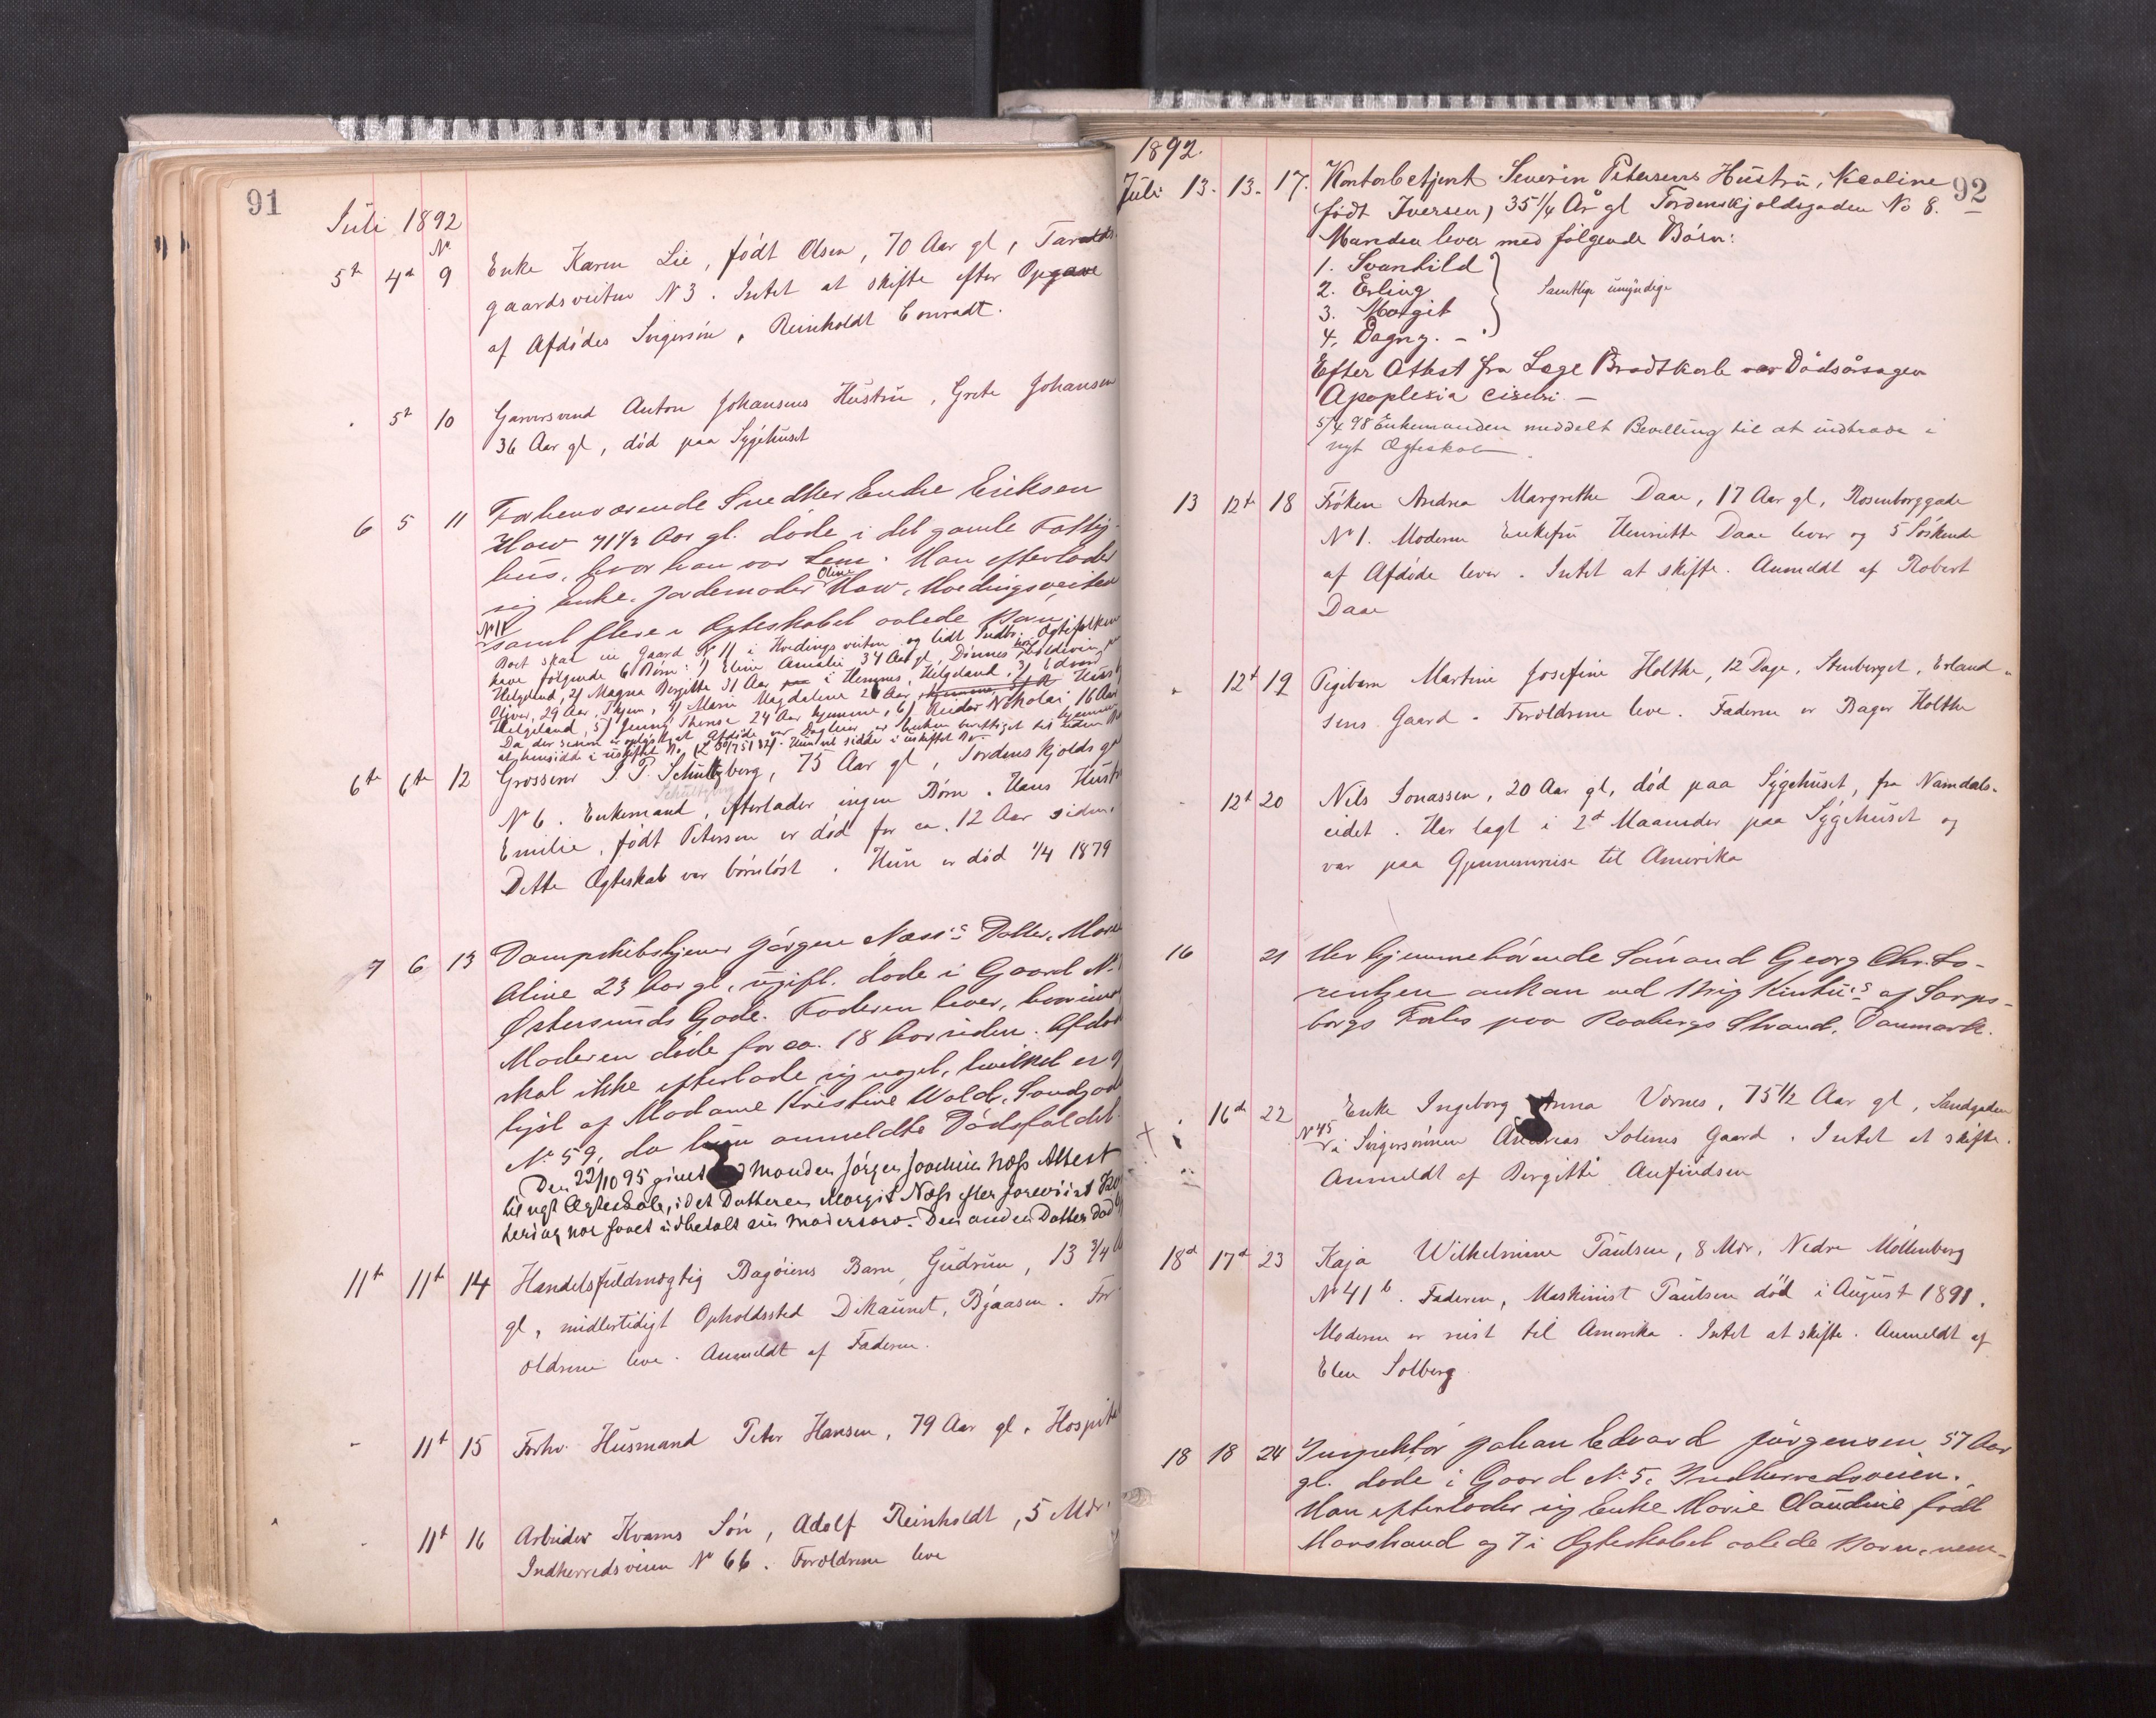 91
Juli 1892
5t 4d No 9 Enke Karen Lie, født Olsen, 70 Aar gl, Taralds-
gaardsveiten N 3. Intet at skifte efter Opgave
af Afdødes Svigersøn, Reinholdt Conradt.
5t 10 Garversvend Anton Johansens Hustru, Grete Johansen
36 Aar gl, død paa Sygehuset
6 5 11 Forhenværende Snedker Endre Eriksen
Haw 71 1/2 Aar gl. døde i det gamle Fattig-
hus, hvor han var Lem. Han efterlader
sig Enke, Jordemoder Oline Haw, Hvedingsveiten
No 11 samt flere i Ægteskabet avlede Børn
Boet skal eie Gaard No 11 i Hvedingsveiten og lidt Indbo. Ægtefolkene
have følgende 6 Børn: 1) Eline Amalie 34 Aar gl, Dønnes
Helgeland, 2) Magna Bergitte 31 Aar i Hemnes, Helgeland, 3) Edvard
Oliver, 29 Aar, 4) Marie Magdalene 26 Aar,
Helgeland, 5) Jenny Therese 24 Aar hjemme, 6) Reidar Nikolai 16 Aar
hjemme
6te 6te 12 Grosserer J. P. Schultzberg, 75 Aar gl, Tordenskjolds g
Schultzberg
No 6. Enkemand, efterlader ingen Børn. Hans Hustru
Emilie, født Petersen er død for ca. 12 Aar siden.
Dette Ægteskab var børnløst. Hun er død 1/4 1879
7 6 13 Dampskibskjener Jørgen Næss's Datter, Marie
Aline 23 Aar gl, ugift. døde i Gaard No
Østersunds Gade. Faderen lever, hvorimod
Moderen døde for ca. 18 Aar siden. Afdøde
skal ikke efterlade sig noget, hvilket er op
lyst af Madame Kristine Wold, Sandgade
No 59, da hun anmeldte Dødsfaldet.
Den 22/10 95 givet Manden Jørgen Joachim Næss Attest
til nyt Ægteskab, idet Datteren Margit Næss efter forevist
tering har faaet udbetalt sin Mødrearv. Den anden Datter død
11te 11te 14 Handelsfuldmægtig Bagøiens Barn, Gudrun, 13 3/4
gl, midlertidigt Opholdssted Dikaunet, Bjaasen. For
ældrene leve. Anmeldt af Faderen.
11t 15 Forhv. Husmand Peter Hansen, 79 Aar gl, Hospital
11t 16 Arbeider Kvams Søn, Adolf Reinholdt, 5 Mdr.
Indherredsveien No 66. Forældrene leve
92
1892.
Juli 13. 13. 17. Kontorbetjent Severin Petersens Hustru, Nicoline
(født Iversen) 35 1/4 År gl Tordenskjoldsgaden No 8.
Manden lever med følgende Børn:
1. Svanhild
2. Erling
3. Margit
4. Dagny. -
Samtlige umyndige
Efter Attest fra Læge Bradtkorb var Dødsårsagen
Apoplexia cerebri. -
5/4 98 Enkemanden meddelt Bevilling til at indtræde i
nyt Ægteskab.
13 12t 18 Frøken Andrea Margrethe Daae, 17 Aar gl, Rosenborggade
No 1. Moderen Enkefru Henriette Daae lever og 5 Søskende
af Afdøde lever. Intet at skifte. Anmeldt af Robert
Daae
12t 19 Pigebarn Martine Josefine Holthe, 12 Dage, Stenberget, Erland-
sens Gaard. Forældrene leve. Faderen er Bager Holthe
12t 20 Nils Jonassen, 20 Aar gl, død paa Sygehuset, fra Namdals-
eidet. Har lagt i 2d Maaneder paa Sygehuset og
var paa Gjennemreise til Amerika
16 21 Her hjemmehørende Sømand Georg Chr. Lo-
rentzen omkom ved Brig Kintu's af Sarps-
borgs Forlis paa Raabergs Strand, Danmark.
16d 22 Enke Ingeborg Anna Vernes, 75 1/2 Aar gl, Sandgaden
No 45 i Svigersønnen Andreas Solems Gaard. Intet at skifte.
Anmeldt af Bergitte Anfindsen
18d 17d 23 Kaja Wilhelmine Paulsen, 8 Mdr, Nedre Møllenberg
No 41 b. Faderen, Maskinist Paulsen død i August 1891.
Moderen er reist til Amerika. Intet at skifte. Anmeldt af
Elen Solberg
18 18 24 Inspektør Johan Edvard Jørgensen 57 Aar
gl. døde i Gaard No 5, Indherredsveien.
Han efterlader sig Enke Marie Claudine født
Marstrand og 7 i Ægteskabet avlede Børn, nem-